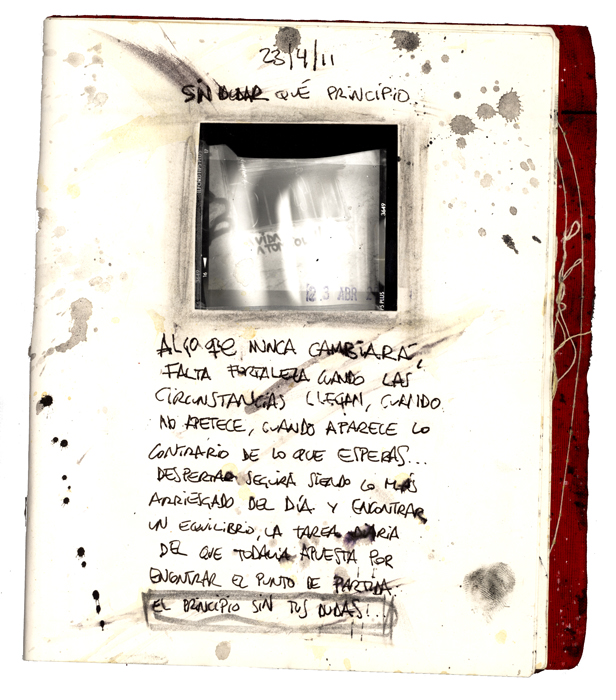 23/4/11
SIN DUDAR QUÉ PRINCIPIO
3649
16
S PLUS
3 ABR
ALGO QE NUNCA CAMBIARÁ,
FALTA FORTALEZA CUANDO LAS
CIRCUNSTANCIAS LLEGAN, CUANDO
NO APETECE, CUANDO APARECE LO
CONTRARIO DE LO QUE ESPERAS...
DESPERTAR SEGUIRÁ SIENDO LO MÁS
ARRIESGADO DEL DÍA. Y ENCONTRAR
UN EQUILIBRIO, LA TAREA DIARIA
DEL QUE TODAVÍA APUESTA POR
ENCONTRAR EL PUNTO DE PARTIDA.
EL PRINCIPIO SIN TUS DUDAS!...